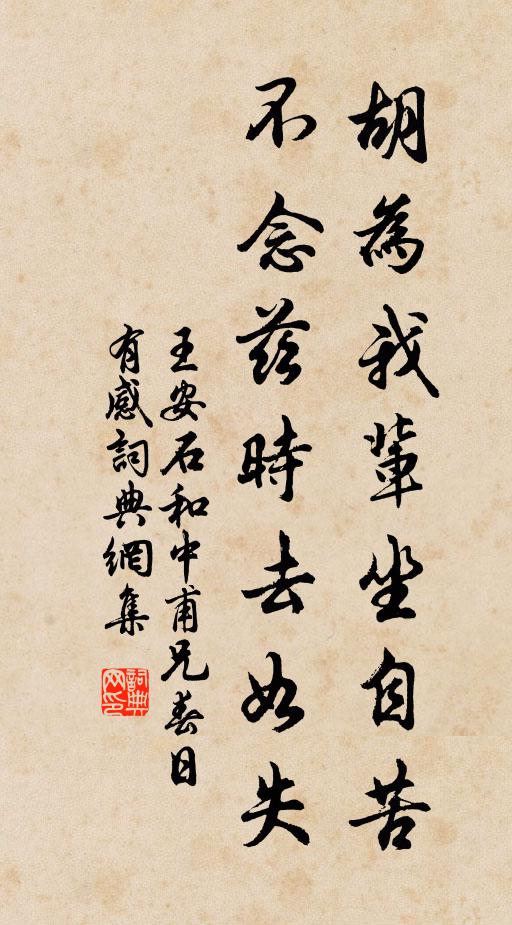 胡為我輩坐自苦
不念茲時去如失
王安石和中甫兄春日
有感詞典網集
詞典網印